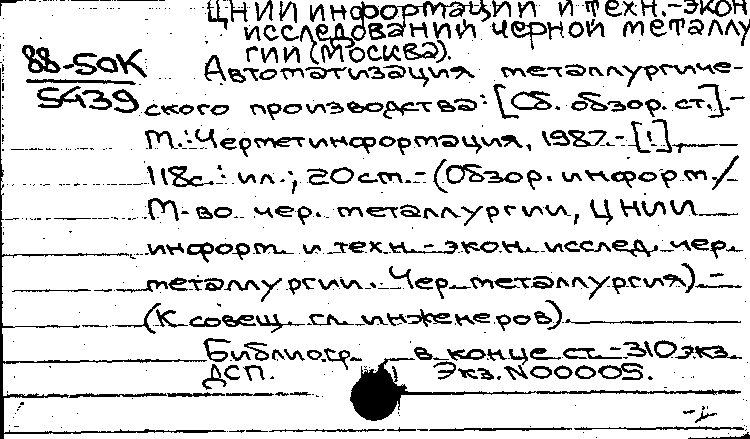 ЦНИИ информации и техн.-экон
исследований черной металлу
гии (Москва).
88-50К
5439
Автоматизация металлургиче-
ского производства: [Сб. обзор. ст.].-
М.: Черметинформация, 1987.- [1],
118с.: ил.; 20см.- (Обзор. информ./
М-во чер. металлургии, ЦНИИ
информ. и техн.-экон. исслед. чер.
металлургии. Чер. металлургия).-
(К совещ. гл. инженеров).
Библиогр. в конце ст.-310 экз.
ДСП. Экз. N00005.